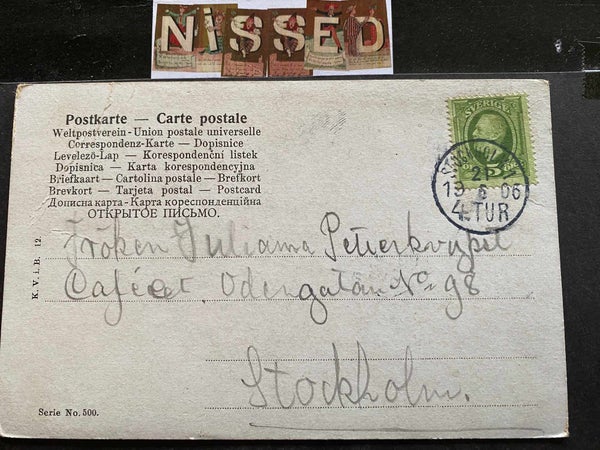 NiSSED
Postkarte — Carte postale
Weltpostverein - Union postale universelle
Correspondenz-Karte — Dopisnice
Levelező-Lap — Korespondenční listek
Dopisnica — Karta korespondencyjna
Briefkaart — Cartolina postale — Brefkort
Brevkort — Tarjeta postal — Postcard
Дописна карта - Карта кореспонденційна
ОТКРЫТОЕ ПИСЬМО.
SVERIGE
5
25
19 6 06
4. TUR
Fröken Juliana
Caféet, Odengatan No 98
Stockholm.
K. V. i. B. 12.
Serie No. 500.